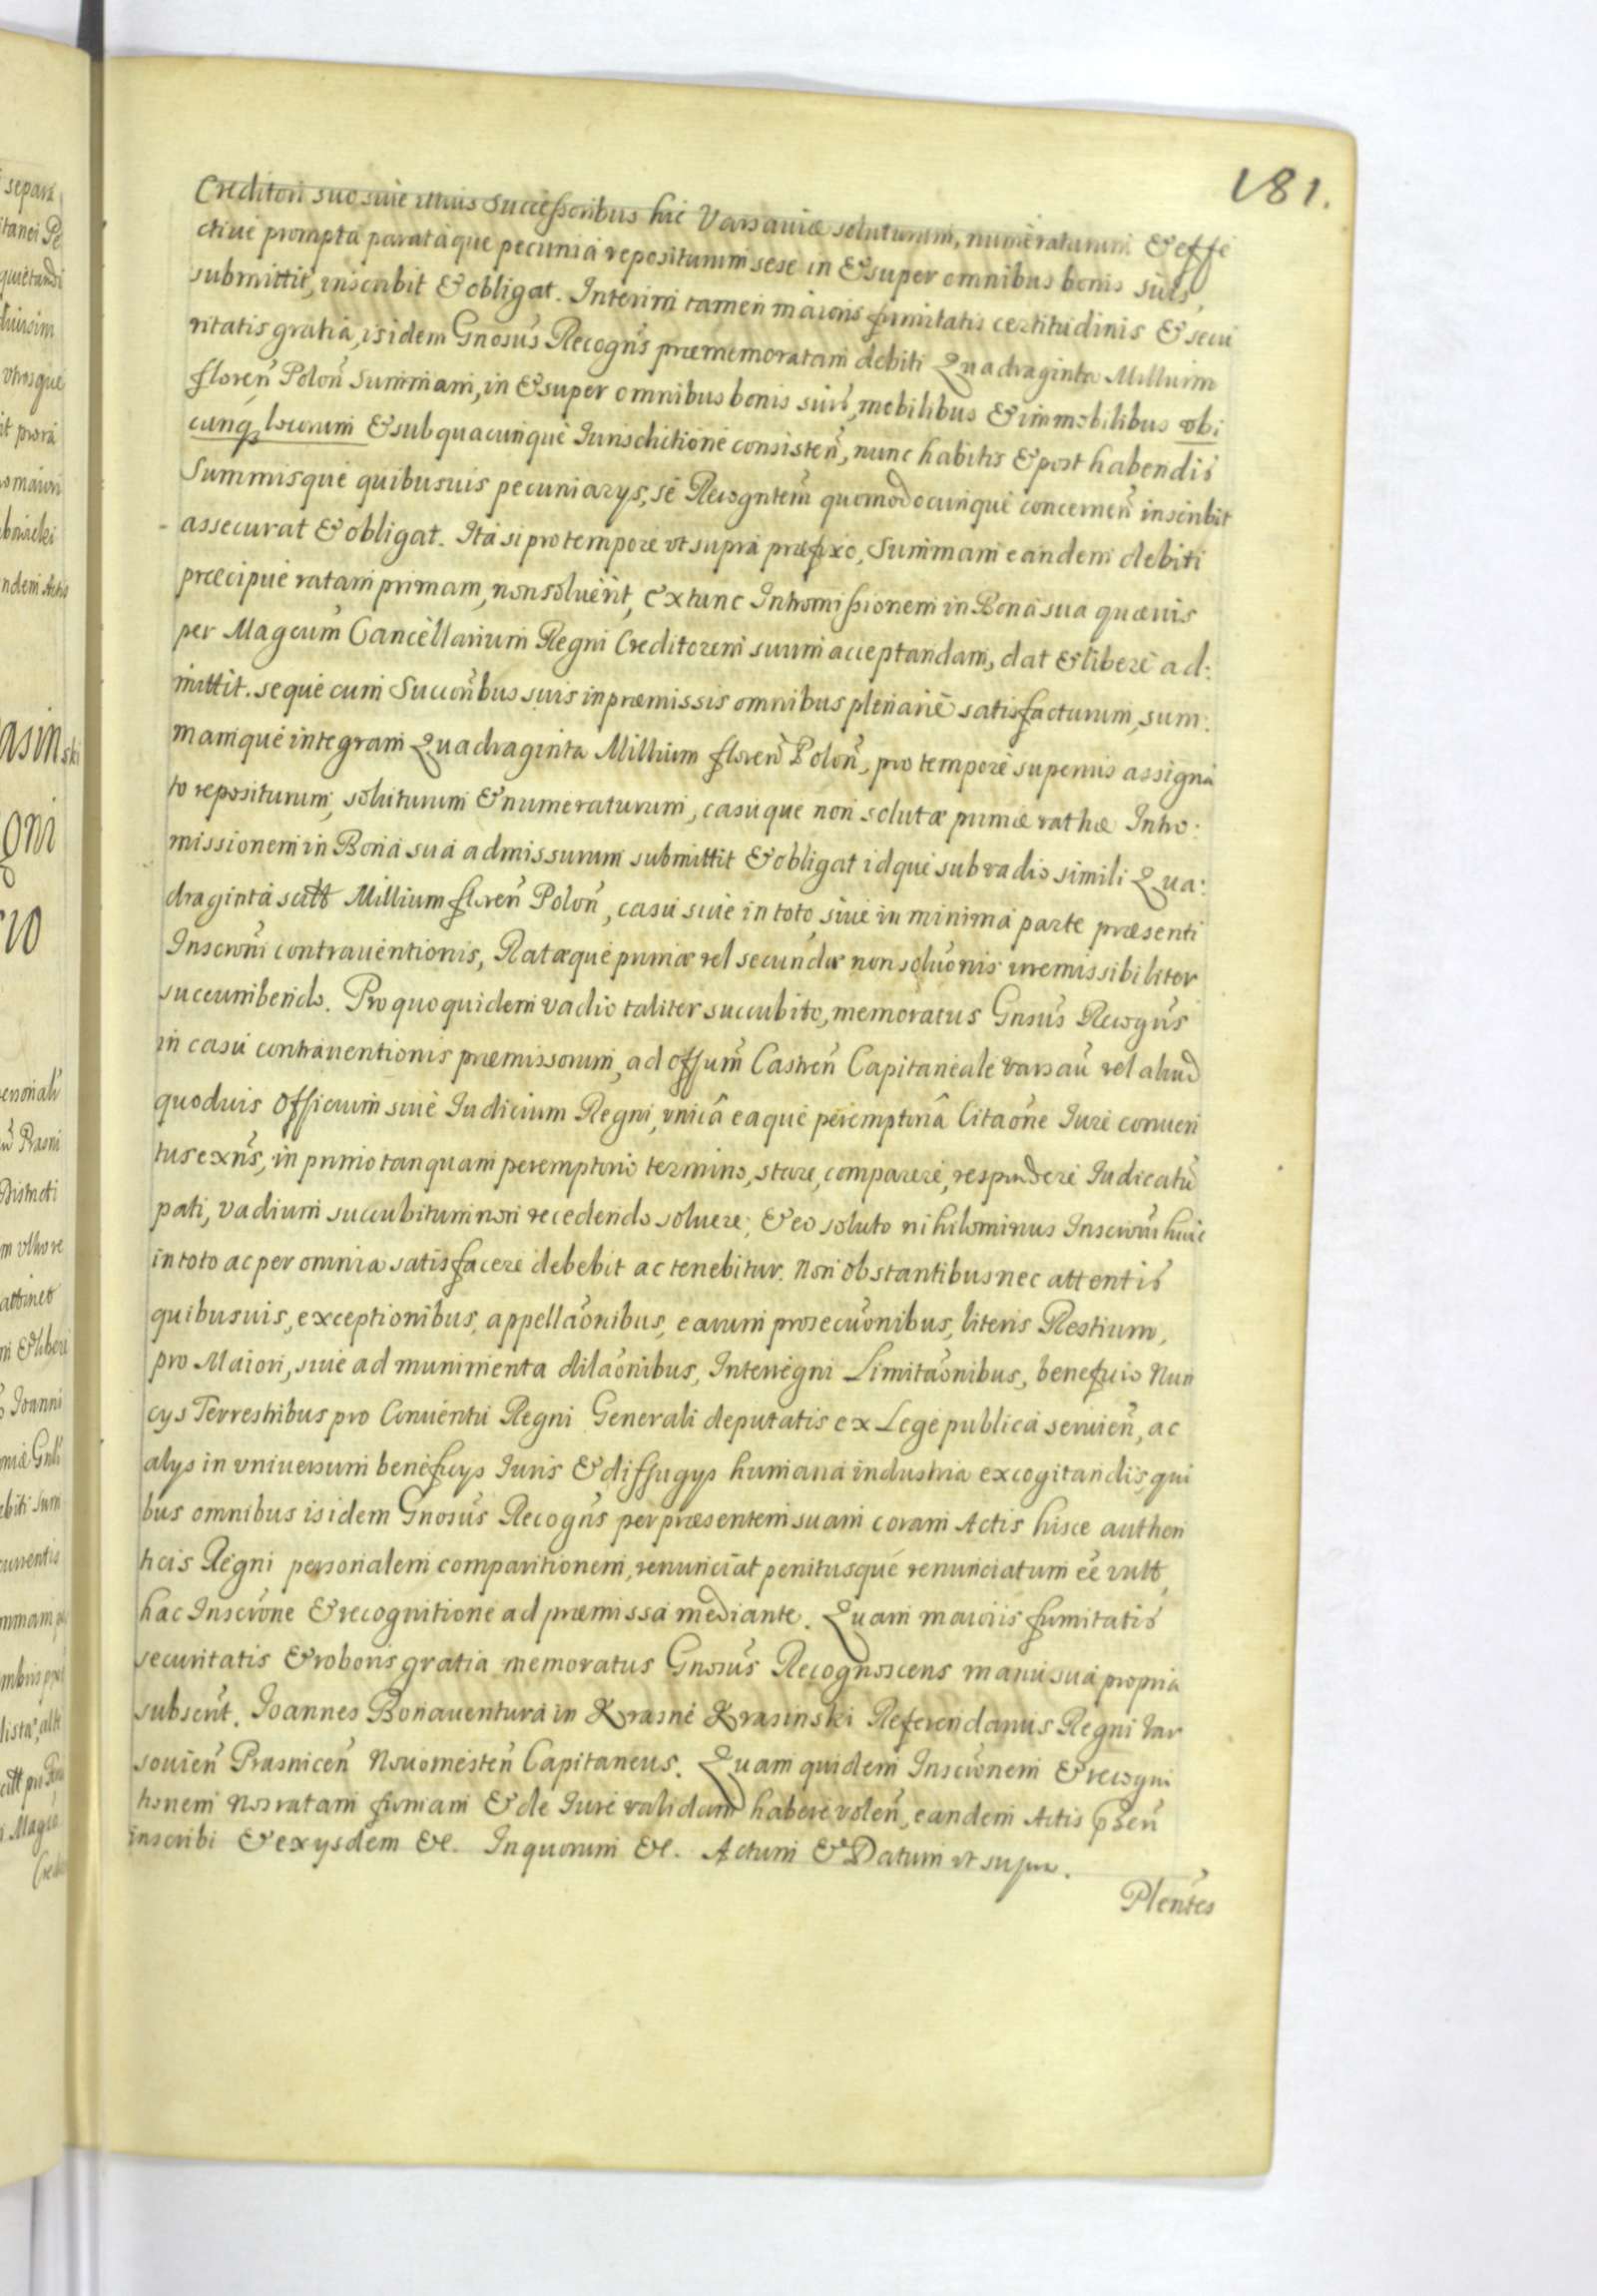 181.
Creditori suo siue illius Successoribus hic Varsauiæ soluturum, numeraturum & effe
ctiue prompta parataque pecunia repositurum sese in & super omnibus bonis suis
submittit, inscribit & obligat. Interim tamen maioris firmitatis certitudinis & secu
ritatis gratia, isidem Gnosus Recogns præmemoratam debiti Quadraginta Millium
floren Polon Summam, in & super omnibus bonis suis, mobilibus & immobilibus vbi
cunq locorum & sub quacunque Iurisdictione consisten, nunc habitis & post habendis
Summisque quibusuis pecuniarys, se Recogntem quomodocunque concernen inscribit
assecurat & obligat. Ita si pro tempore vt supra præfixo, Summam eandem debiti
præcipue ratam primam, non soluerit, ex tunc Intromissionem in Bona sua quæuis
per Magcum Cancellarium Regni Creditorem suum acceptandam, dat & libere ad:
mittit. seque cum Succoribus suis in præmissis omnibus plenarie satisfacturum, sum:
mamque integram Quadraginta Millium floren Polon, pro tempore superius assigna
to repositurum, soluturum & numeraturum, casuque non solutæ primæ rathæ Intro:
missionem in Bona sua admissurum submittit & obligat idque sub vadio simili Qua:
draginta scilt Millium floren Polon, casu siue in toto, siue in minima parte præsenti
Inscrōni contrauentionis, Ratæque primæ vel secundæ non soluōnis irremissibiliter
succumbendo. Pro quo quidem vadio taliter succubito, memoratus Gnsus Recogns
in casu contrauentionis præmissorum, ad offum Castren Capitaneale Varsau vel aliud
quoduis Officium siue Iudicium Regni, vnicâ eaque peremptoriâ Citaōne Iure conuen
tus exns, in primo tanquam peremptorio termino, stare, comparere, respondere Iudicatu
pati, vadium succubitum non recedendo soluere; & eo soluto nihilominus Inscrōni huic
in toto ac per omnia satisfacere debebit ac tenebitur. Non obstantibus nec attentis
quibusuis, exceptionibus, appellaōnibus, earum prosecuōnibus, literis Restium,
pro Maiori, siue ad munimenta dilaōnibus, Interregni Limitaōnibus, beneficio Nun
cys Terrestribus pro Conuentu Regni Generali deputatis ex Lege publica seruien, ac
alys in vniuersum beneficys Iuris & diffugys humana industria excogitandis, qui
bus omnibus isidem Gnosus Recogns per præsentem suam coram Actis hisce authen
ticis Regni personalem comparitionem, renunciat penitusque renunciatum eē vult,
hac Inscrōne & recognitione ad præmissa mediante. Quam maioris firmitatis
securitatis & roboris gratia memoratus Gnosus Recognoscens manu sua propria
subscrit. Ioannes Bonauentura in Krasne Krasinski Referendarius Regni Var
souien Prasnicen Nouomesten Capitaneus. Quam quidem Inscrōnem & recogni
tionem Nos ratam firmam & de Iure validam habere volen, eandem Actis pn̄
inscribi & ex ysdem &c. In quorum &c. Actum & Datum vt supra.
Plentes